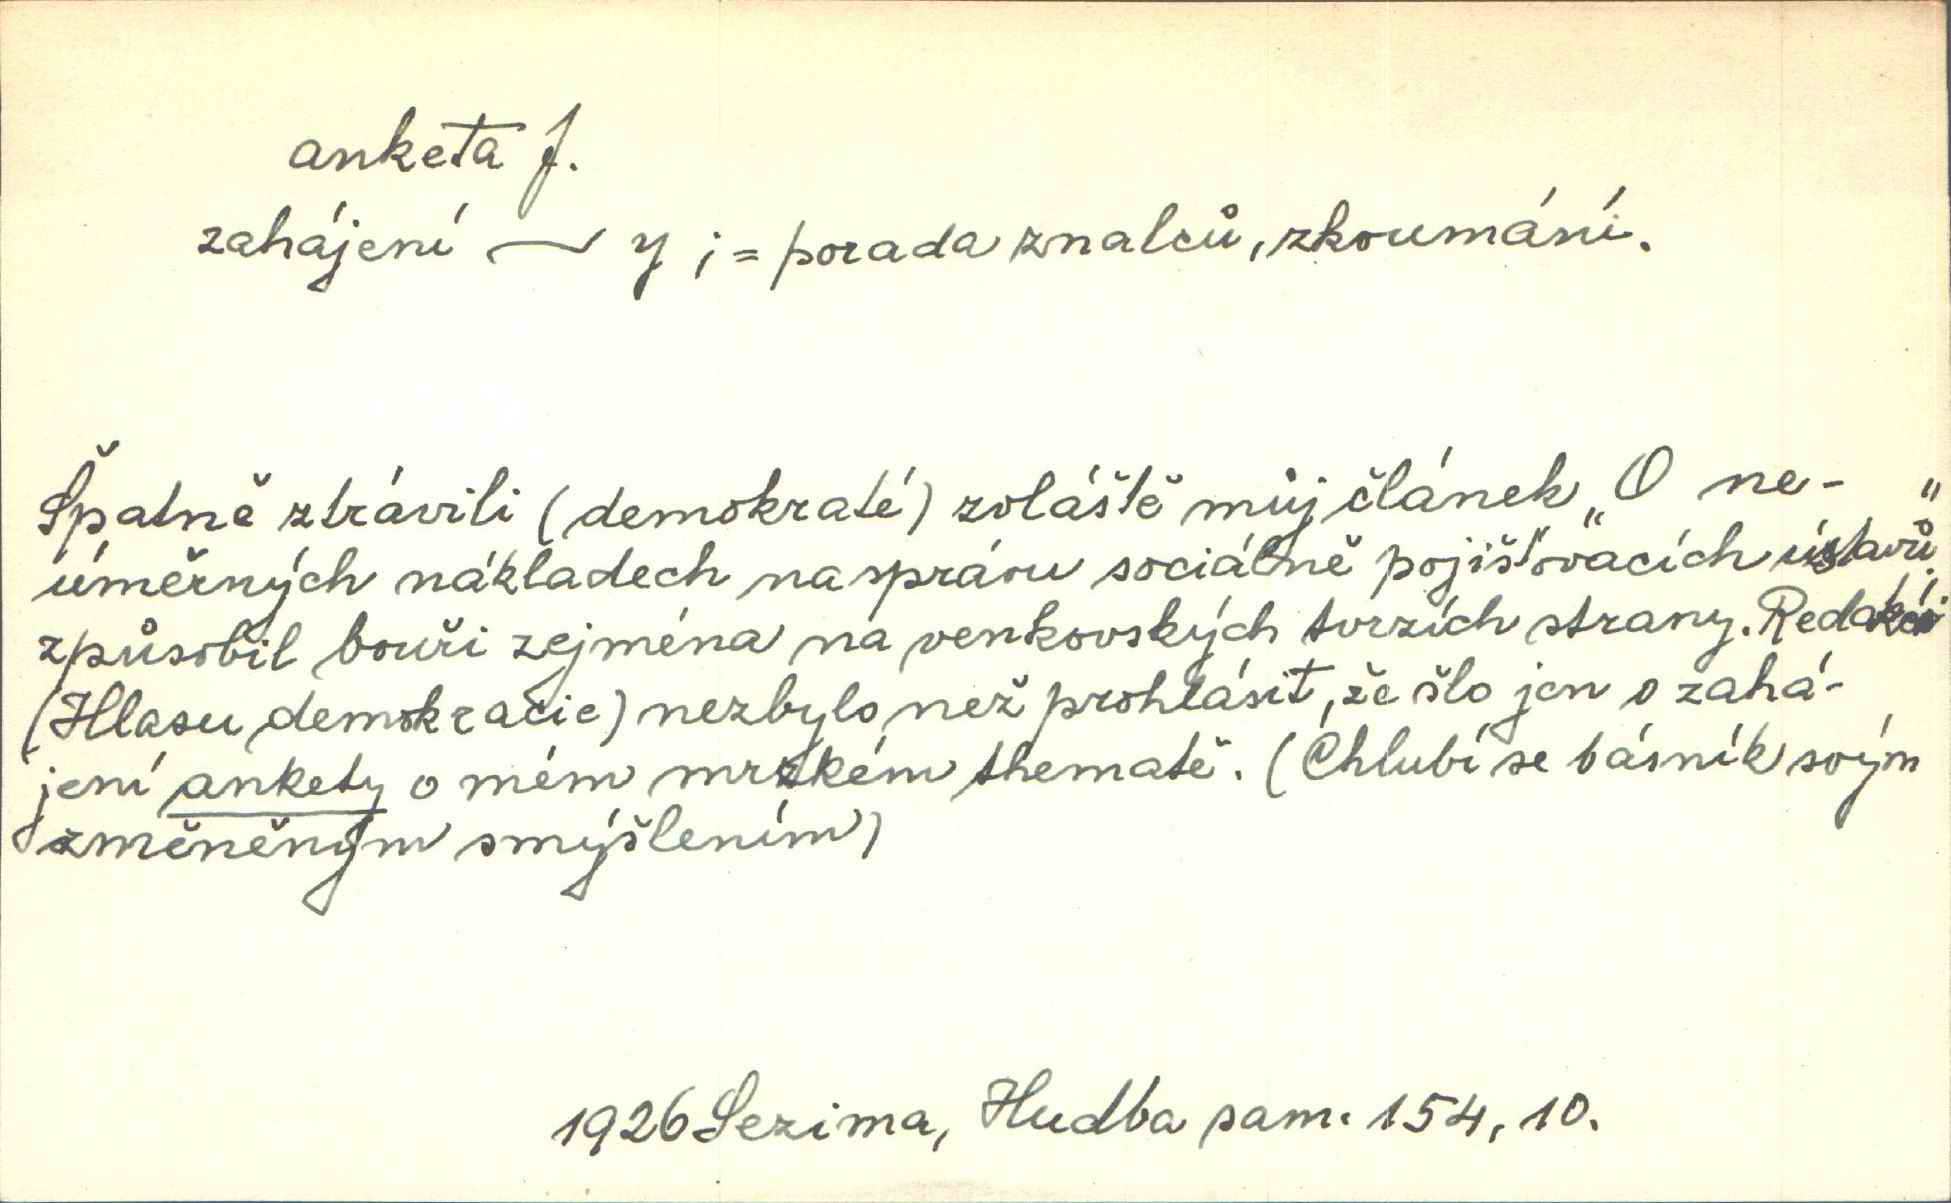 anketa f.
zahájení ~ y ; = porada znalců, zkoumání.
Špatně ztrávili (demokraté) zvláště můj článek „O ne-
úměrných nákladech na správu sociálně pojišťovacích ústavů“
způsobil bouři zejména na venkovských tvrzích strany. Redakci
(Hlasu demokracie) nezbylo než prohlásit, že šlo jen o zahá-
jení ankety o mém mrzkém thematě. (Chlubí se básník svým
změněným smýšlením)
1926 Sezima, Hudba sam. 154, 10.